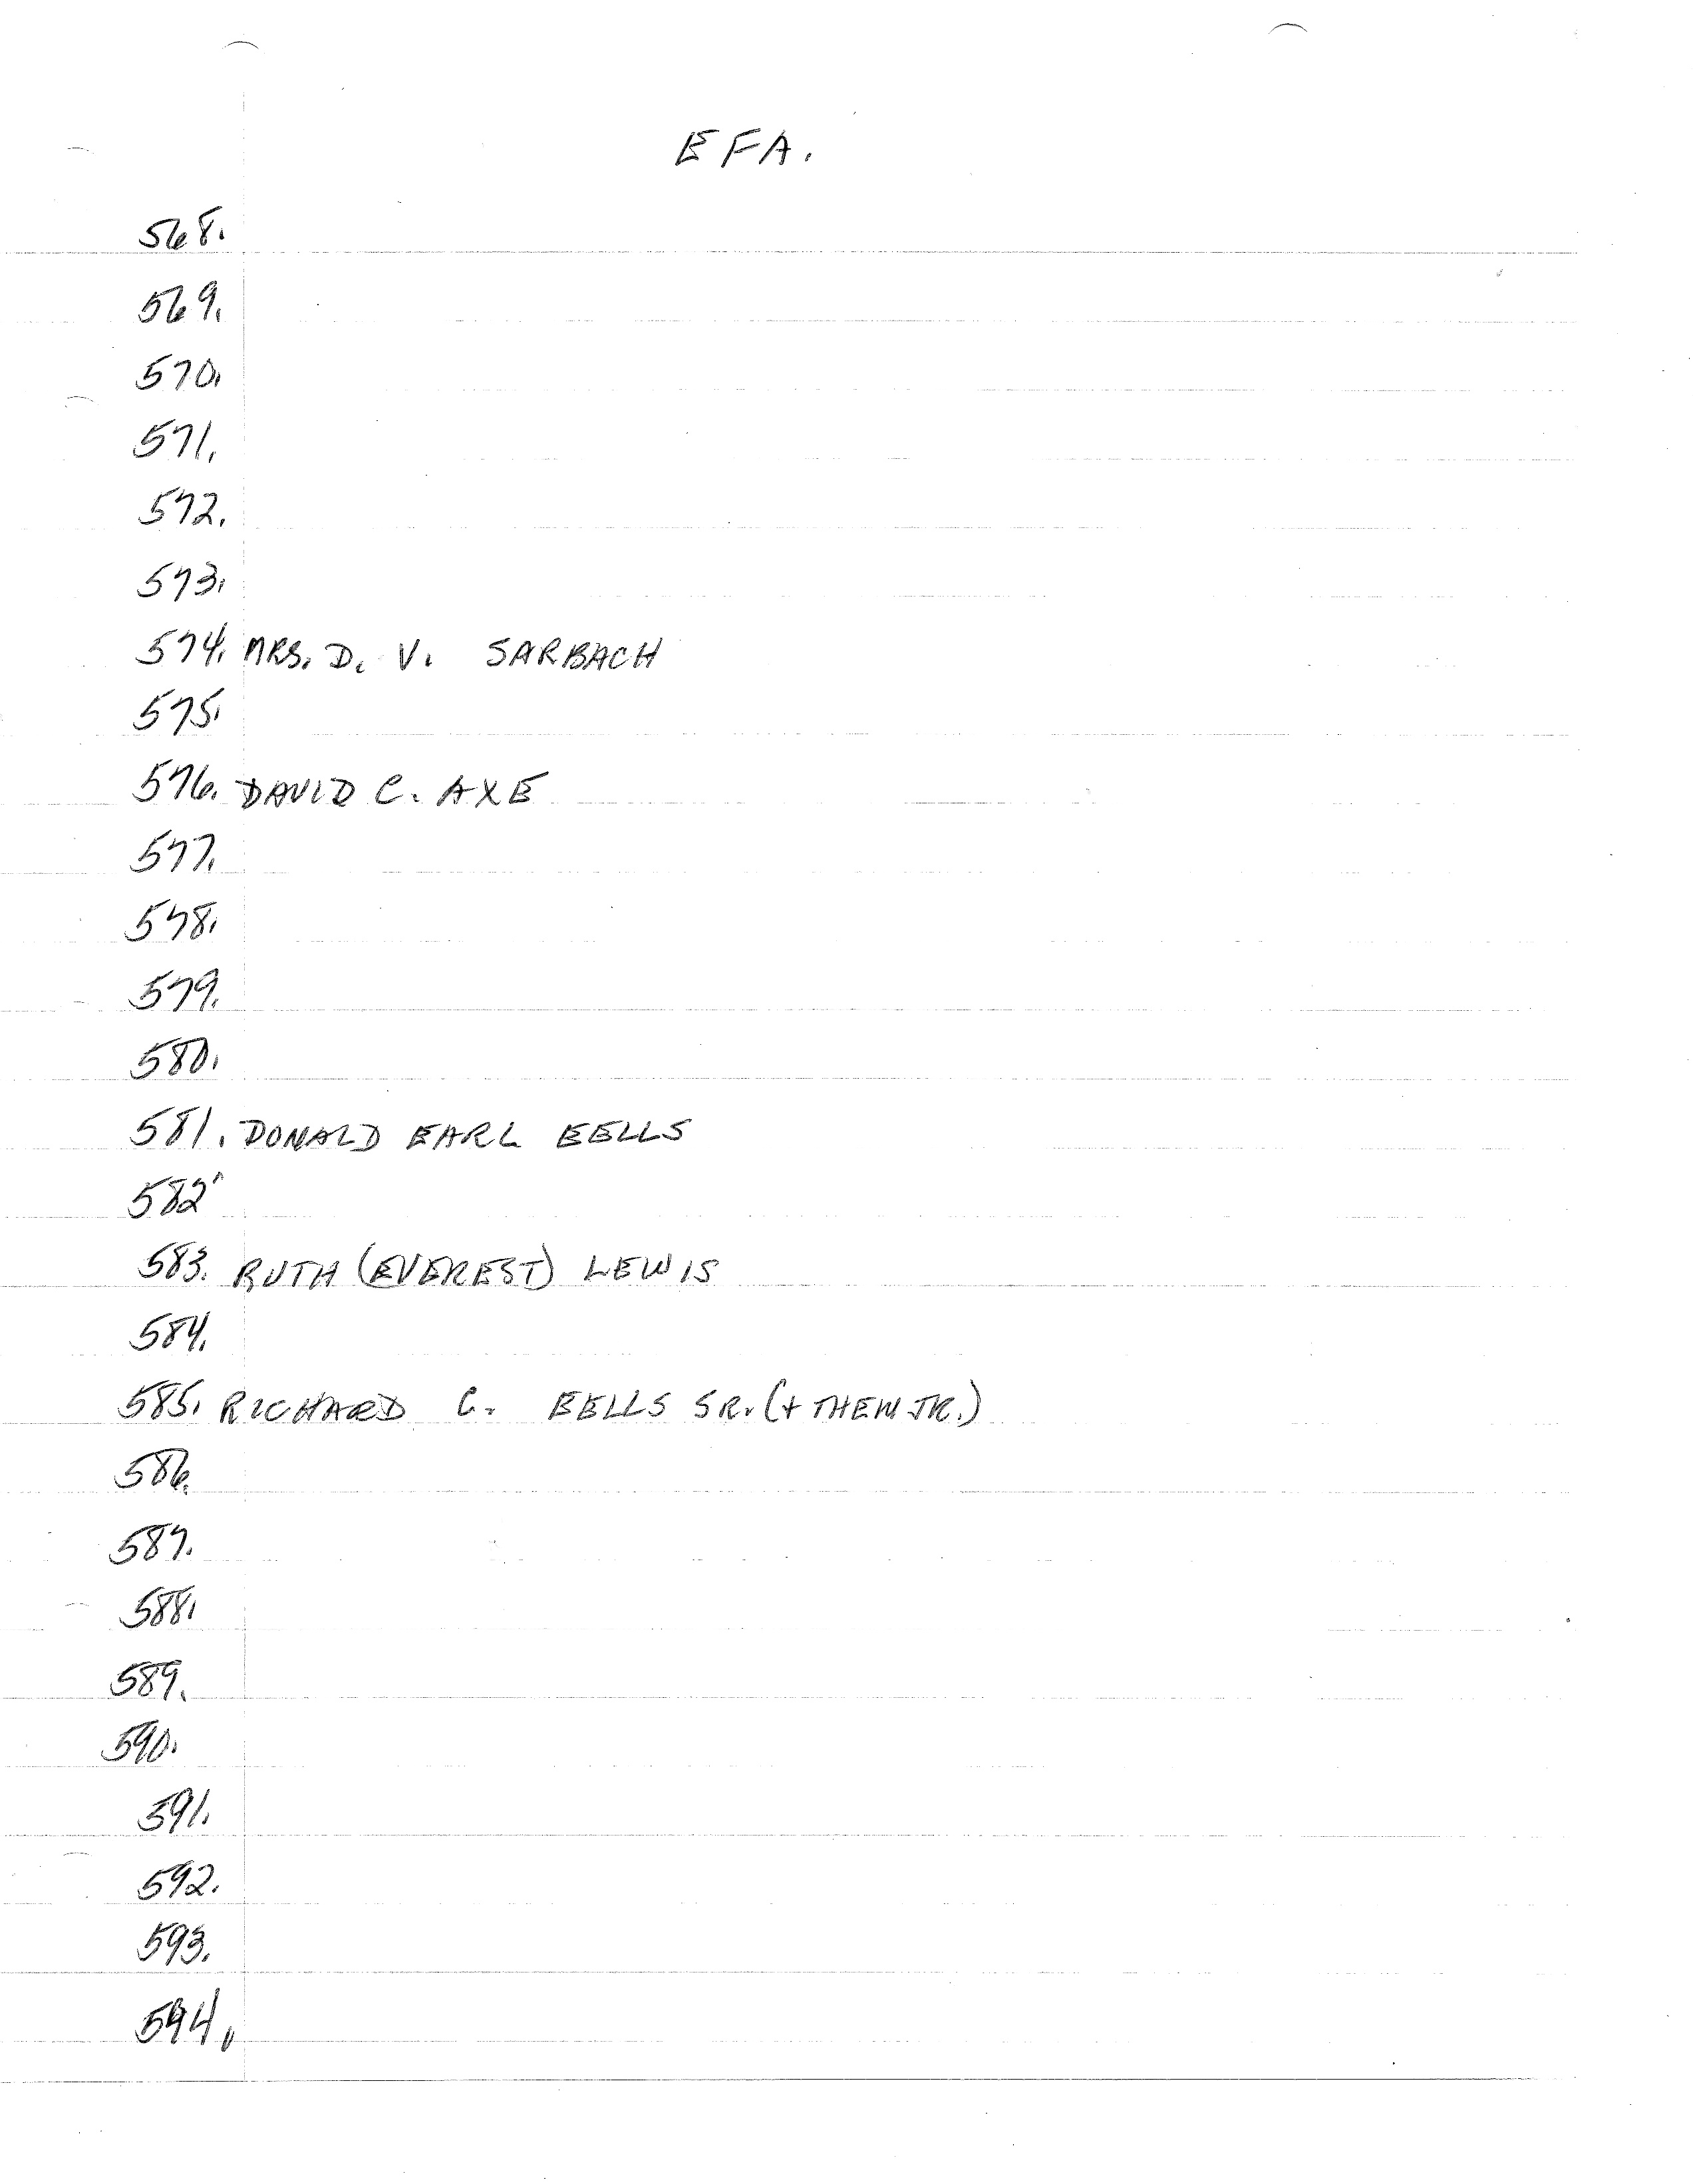 EFA.
568.
569.
570.
571.
572.
573.
574. MRS. D. V. SARBACH
575.
576. DAVID C. AXE
577.
578.
579.
580.
581. DONALD EARL EELLS
582.
583. RUTH (EVEREST) LEWIS
584.
585. RICHARD C. EELLS SR. (+ THEN JR.)
586.
587.
588.
589.
590.
591.
592.
593.
594.